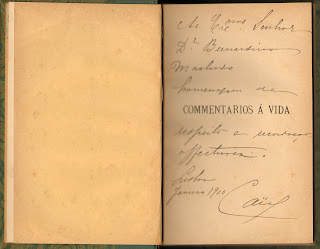 Ao Ex.mo Senhor
Dr. Bernardino
Machado
homenagem de
COMMENTARIOS Á VIDA
respeito e
affectuosa.
Lisboa
Janeiro 1900
Caïel